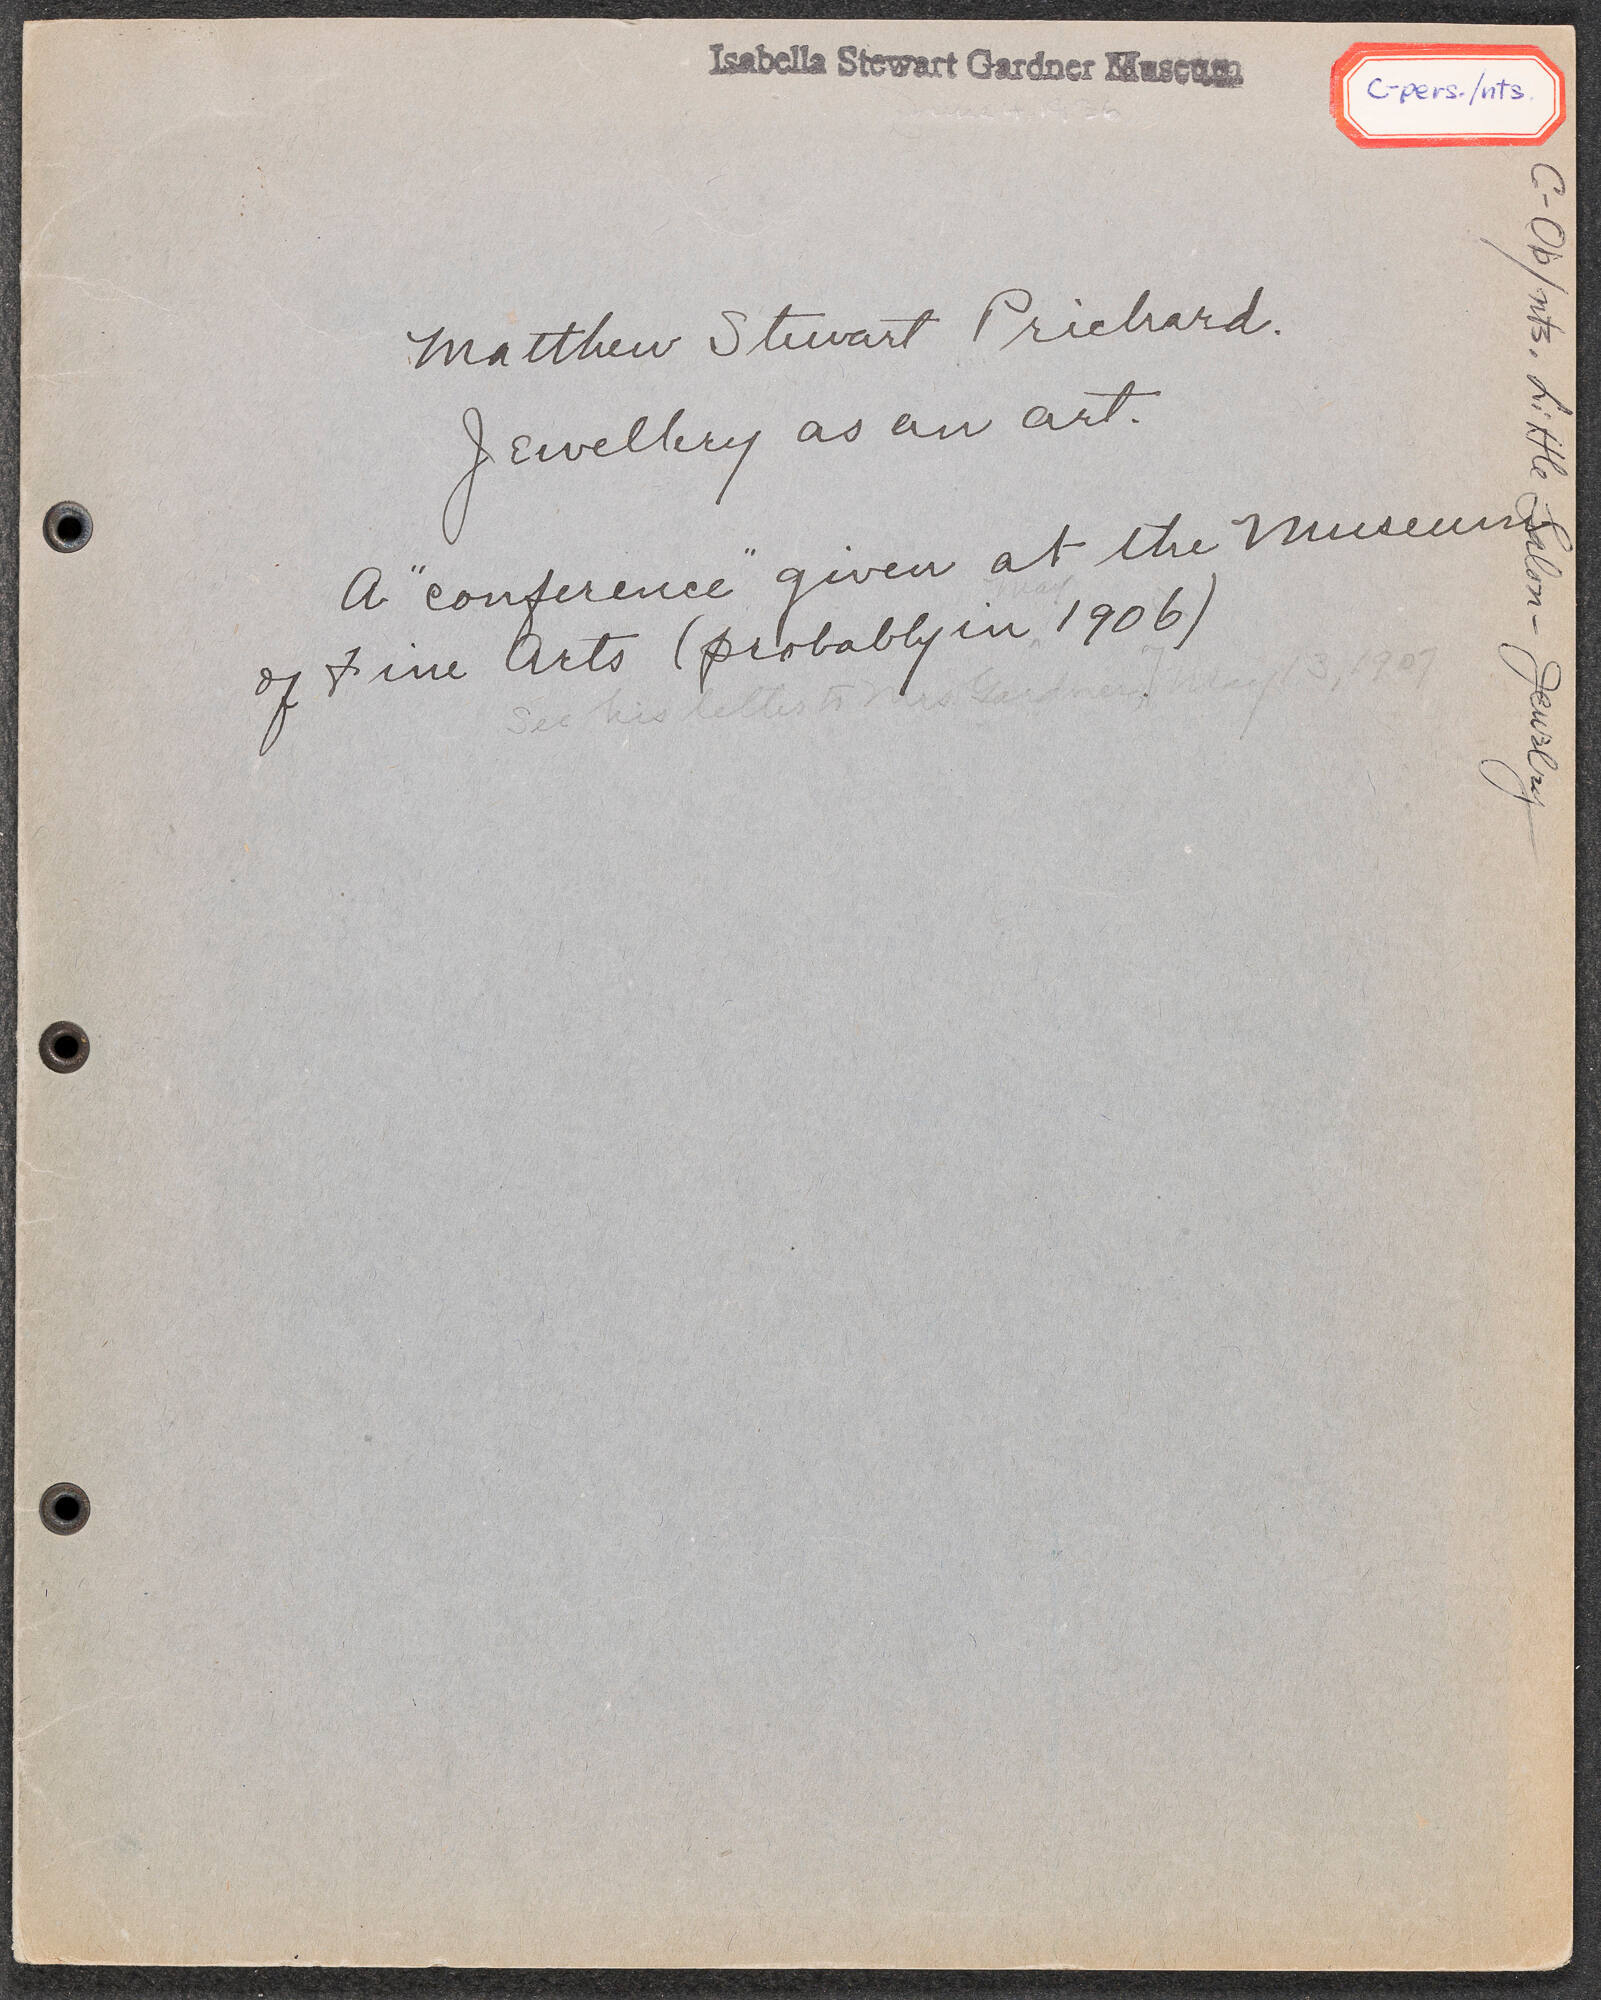 Isabella Stewart Gardner Museum
C-pers./nts.
C-Ob/nts. Little Salon - Jewelry
Matthew Stewart Prichard.
Jewellery as an art.
A "conference" given at the Museum
May
of Fine Arts (probably in 1906)
See his letter to Mrs Gardner, May 13, 1907